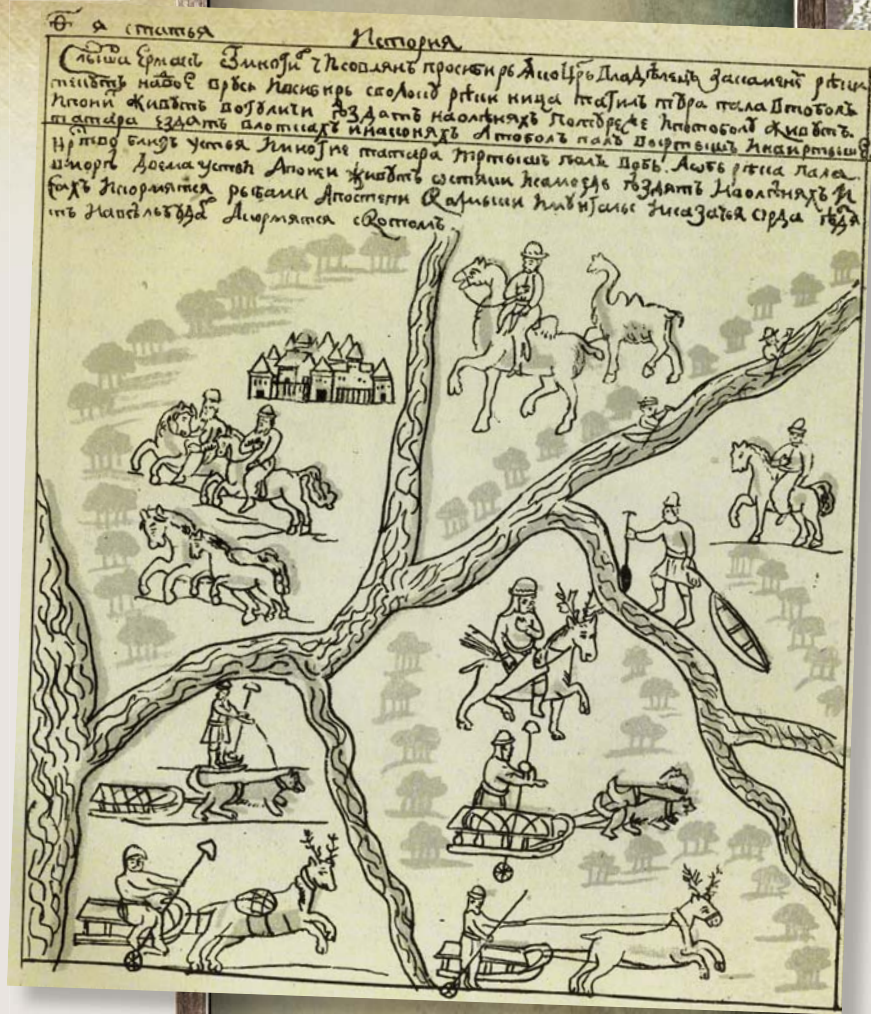 я статья История
Слыша Ермакъ ѿ многих чюсовлянъ про сибирь яко црь владѣлецъ за камени рѣки
текутъ на двое в русь и в сибирь с волоку рѣки ница тагилъ тура пала в тоболъ
и по ни живутъ вогуличи ѣздатъ на оленяхъ по туре же и по тоболу живутъ
татара ездятъ в лоткахъ и на коняхъ а тоболъ палъ во иртышъ и на иртыше
цртво близъ устья и многие татара иртышъ палъ в обь. а обь рѣка пала
в море двема устьи а по неи живутъ остяки и самоедь ѣздятъ на оленяхъ и
сахъ и кормятся рыбами а по степи калмыки и мунгалы и казачья орда ѣздя
тъ на вельбуда а кормятся скотомъ